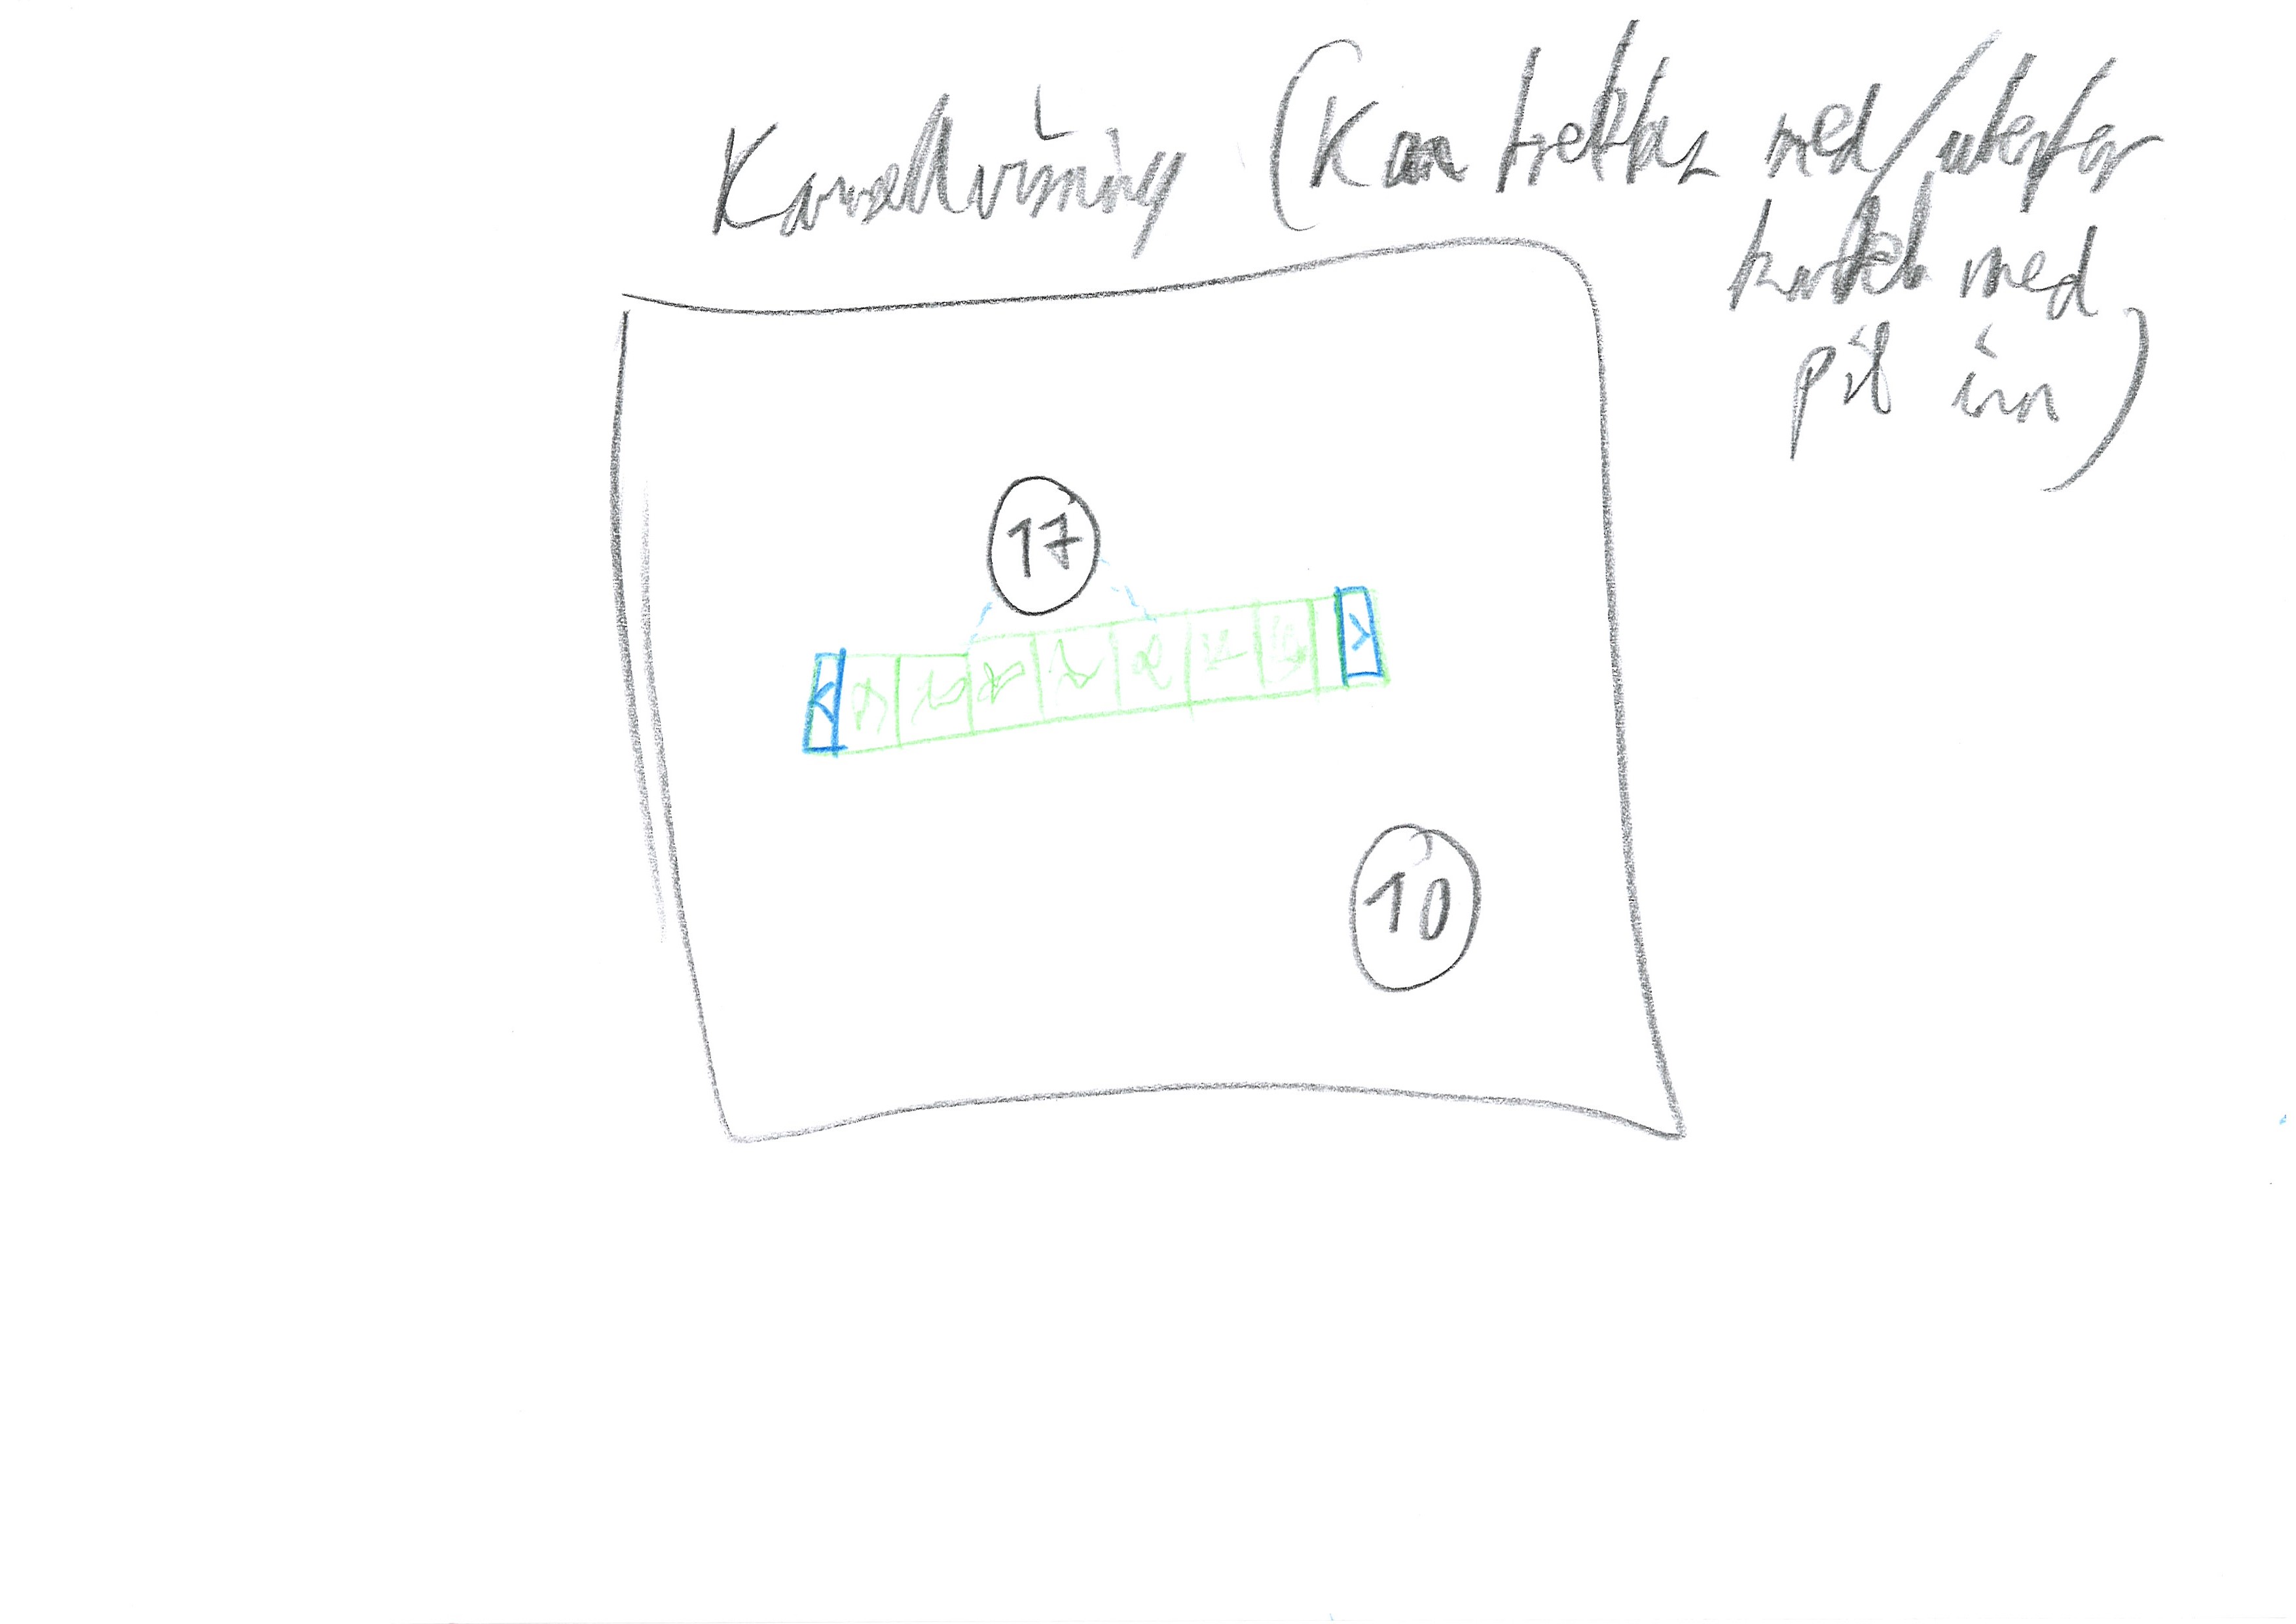 Karusellvisning (Kan trekkes med/utenfor
kartet med
pil inn)
17
< >
10